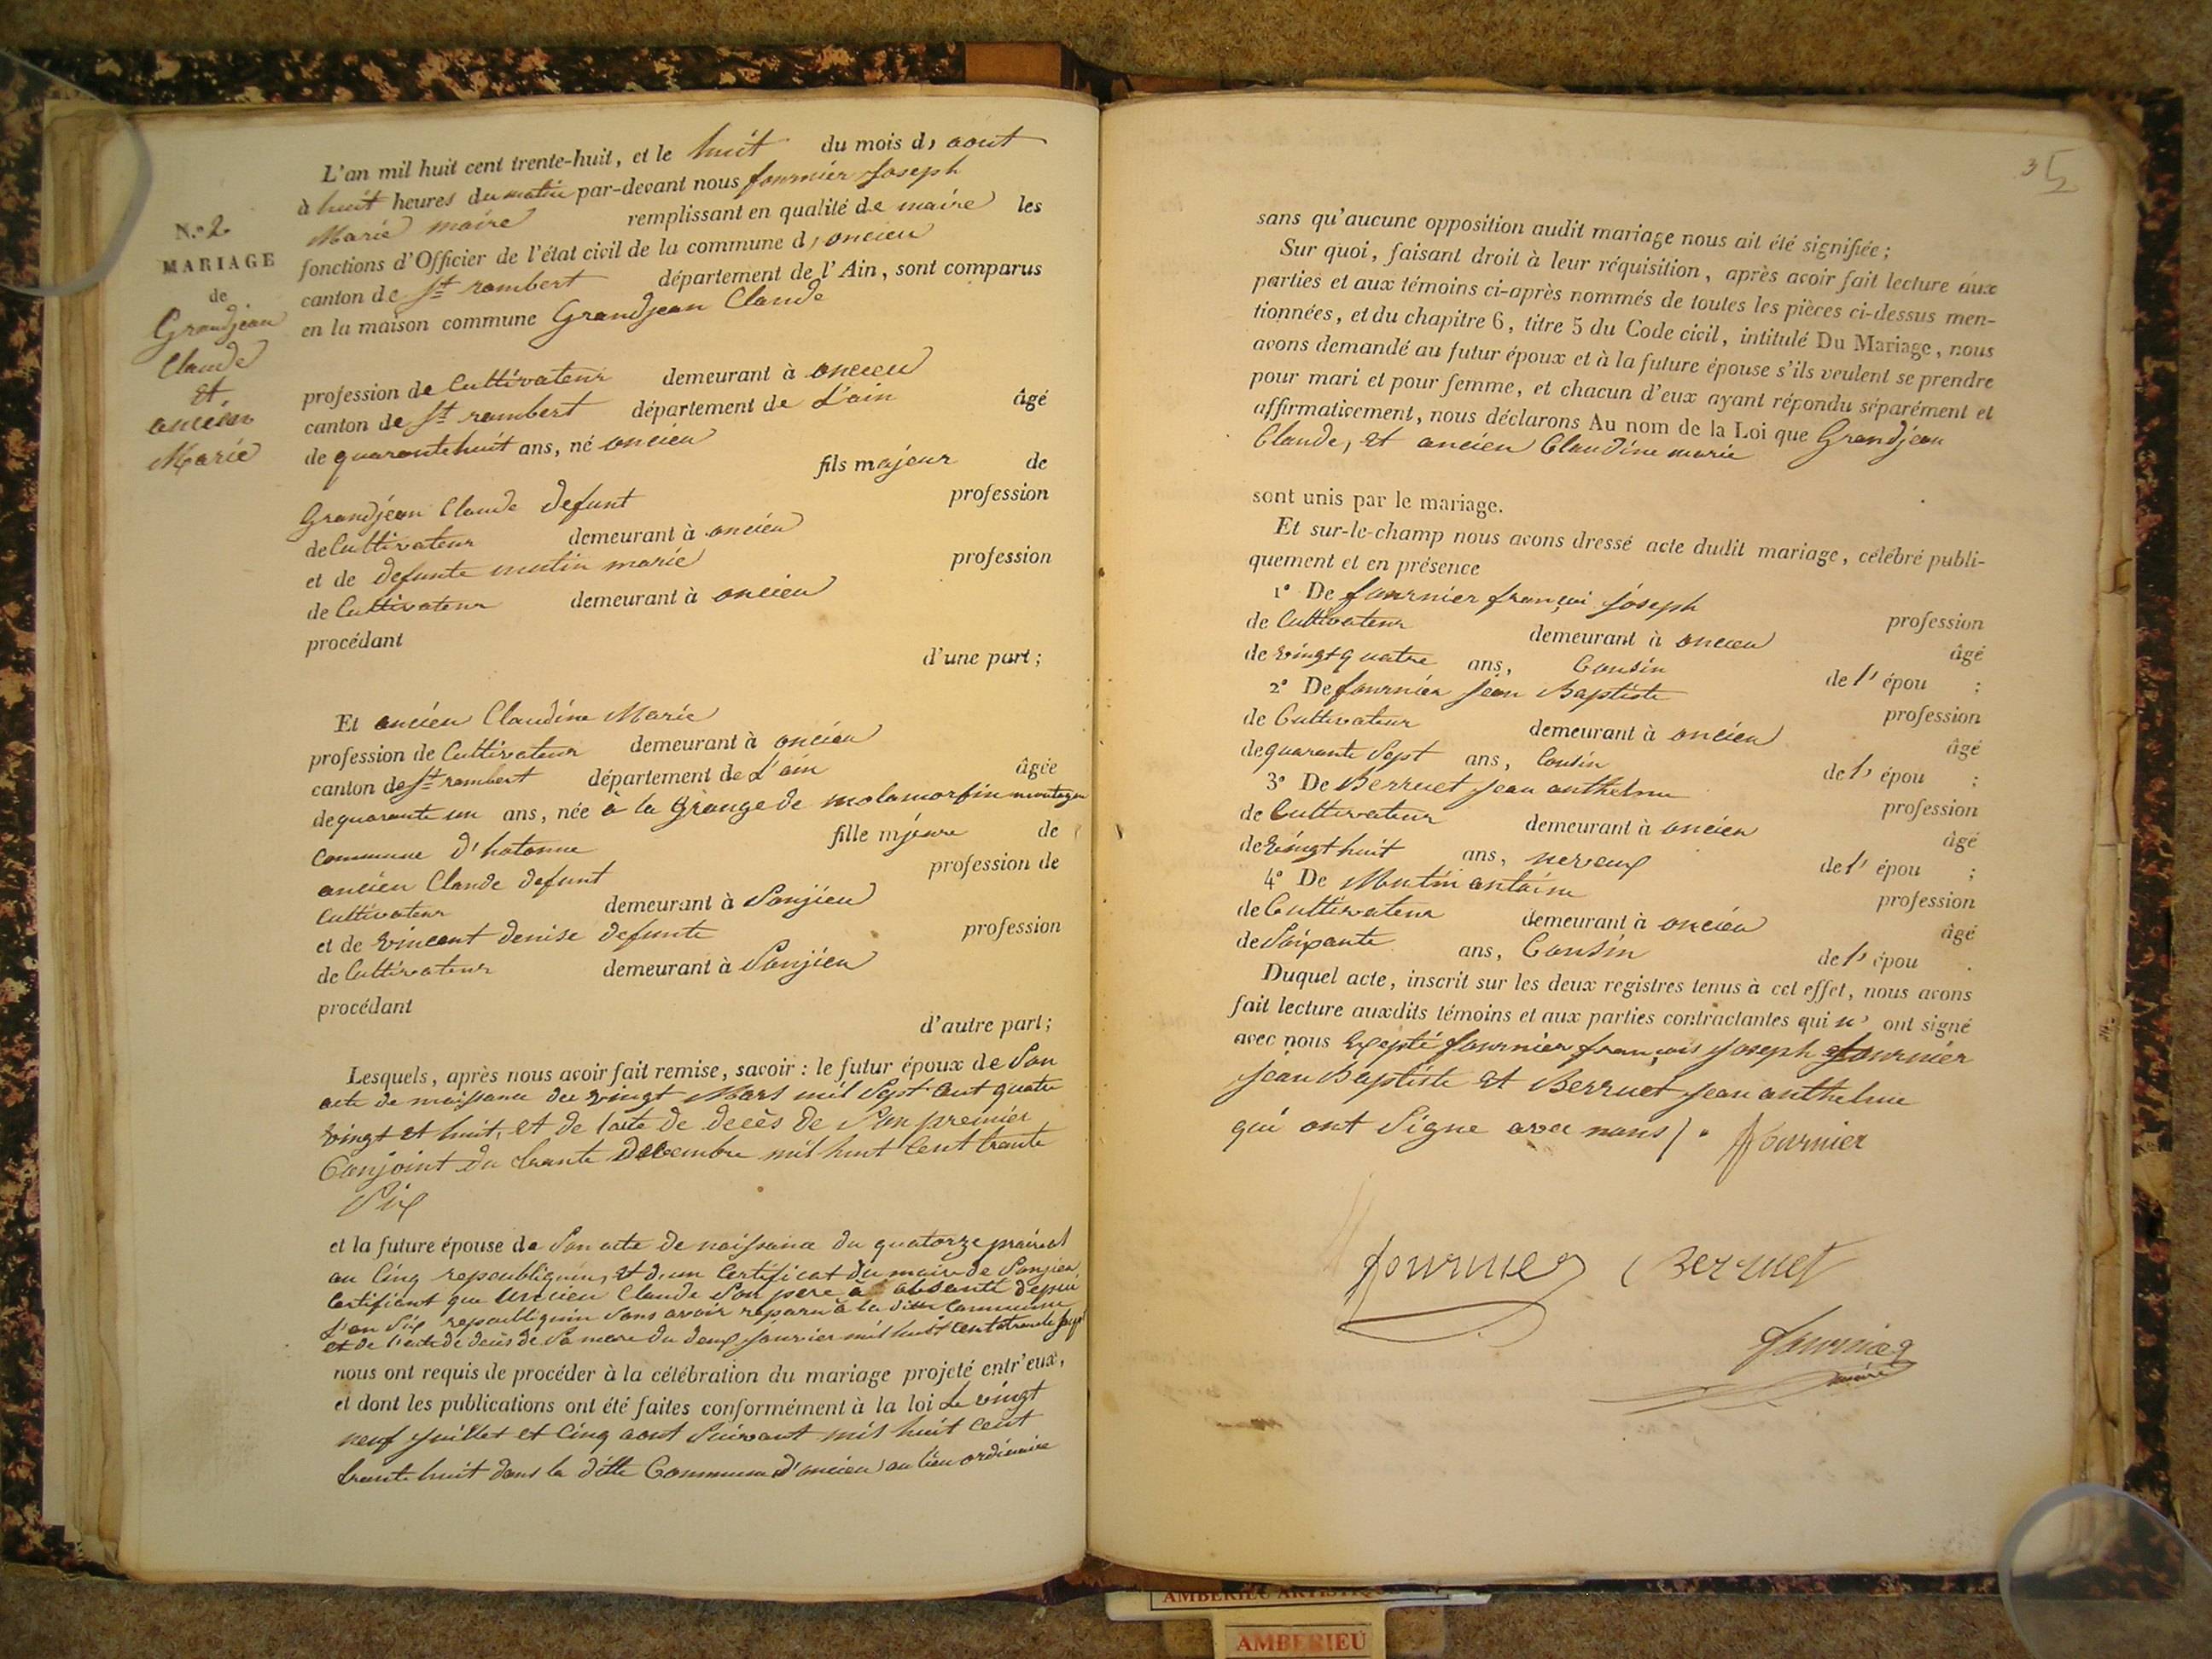 L'an mil huit cent trente-huit, et le huit du mois d, aout
à huit heures du matin par-devant nous fournier Joseph
Marie maire remplissant en qualité de maire les
fonctions d'Officier de l'état civil de la commune d, oncieu
canton de St rambert département de l'Ain, sont comparus
en la maison commune Grandjean Claude
N.º 2
MARIAGE
de
Grandjean
Claude
et
ancien
Marie
profession de Cultivateur demeurant à oncieu
canton de St rambert département de L'ain âgé
de quarante huit ans, né oncieu
fils majeur de
Grandjean Claude defunt profession
de Cultivateur demeurant à oncieu
et de defunte mutin marie profession
de Cultivateur demeurant à oncieu
procédant
d'une part;
Et ancien Claudine Marie
profession de Cultivateur demeurant à oncieu
canton de St rambert département de L'ain âgée
de quarante un ans, née à la Grange de
commune d'hotonne fille mjeure de
ancien Claude defunt profession de
Cultivateur demeurant à Sonjieu
et de vincent denise defunte profession
de Cultivateur demeurant à Sonjieu
procédant
d'autre part;
Lesquels, après nous avoir fait remise, savoir: le futur époux de Son
acte de naissance du vingt Mars mil Sept Cent quatre
vingt et huit, et de l'acte de decès de Son premier
Conjoint du trente Decembre mil huit Cent trente
Six
et la future épouse de Son acte de naissance du quatorze prairial
an Cinq republiquin, et d,un Certificat du maire de Sonjieu,
Certifiant que Ancien Claude Son pere à absenté depui
L'an Six republiquin Sans avoir reparu à la ditte Commune
et de l'acte de decès de Sa mere du deux Janvier mil huit cent trente Sept
nous ont requis de procéder à la célébration du mariage projeté entr'eux,
et dont les publications ont été faites conformément à la loi Le vingt
neuf Juillet et Cinq aout Suivant mil huit cent
trente huit dans la ditte Commune d'oncieu au lieu ordinaire
35
sans qu'aucune opposition audit mariage nous ait été signifiée;
Sur quoi, faisant droit à leur réquisition, après avoir fait lecture aux
parties et aux témoins ci-après nommés de toutes les pièces ci-dessus men-
tionnées, et du chapitre 6, titre 5 du Code civil, intitulé Du Mariage, nous
avons demandé au futur époux et à la future épouse s'ils veulent se prendre
pour mari et pour femme, et chacun d'eux ayant répondu séparément et
affirmativement, nous déclarons Au nom de la Loi que Grandjean
Claude, et ancien Claudine marie
sont unis par le mariage.
Et sur-le-champ nous avons dressé acte dudit mariage, célébré publi-
quement et en présence
1º De fournier françoi joseph profession
de Cultivateur demeurant à oncieu âgé
de vingt quatre ans, Cousin de l' épou ;
2º De fournier Jean Baptiste profession
de Cultivateur demeurant à oncieu âgé
de quarante Sept ans, Cousin de l' épou ;
3º De Berruet Jean anthelme profession
de Cultivateur demeurant à oncieu âgé
de vingt huit ans, neveux de l' épou ;
4º De Mutin antoine profession
de Cultivateur demeurant à oncieu âgé
de Soixante ans, Cousin de l' épou .
Duquel acte, inscrit sur les deux registres tenus à cet effet, nous avons
fait lecture auxdits témoins et aux parties contractantes qui n' ont signé
avec nous Excepté fournier françois Joseph fournier
Jean Baptiste et Berruet Jean anthelme
qui ont Signe avec nous /. fournier
fournier Berruet
fournier
maire
AMBERIEU ARTISTIQUE
AMBERIEU